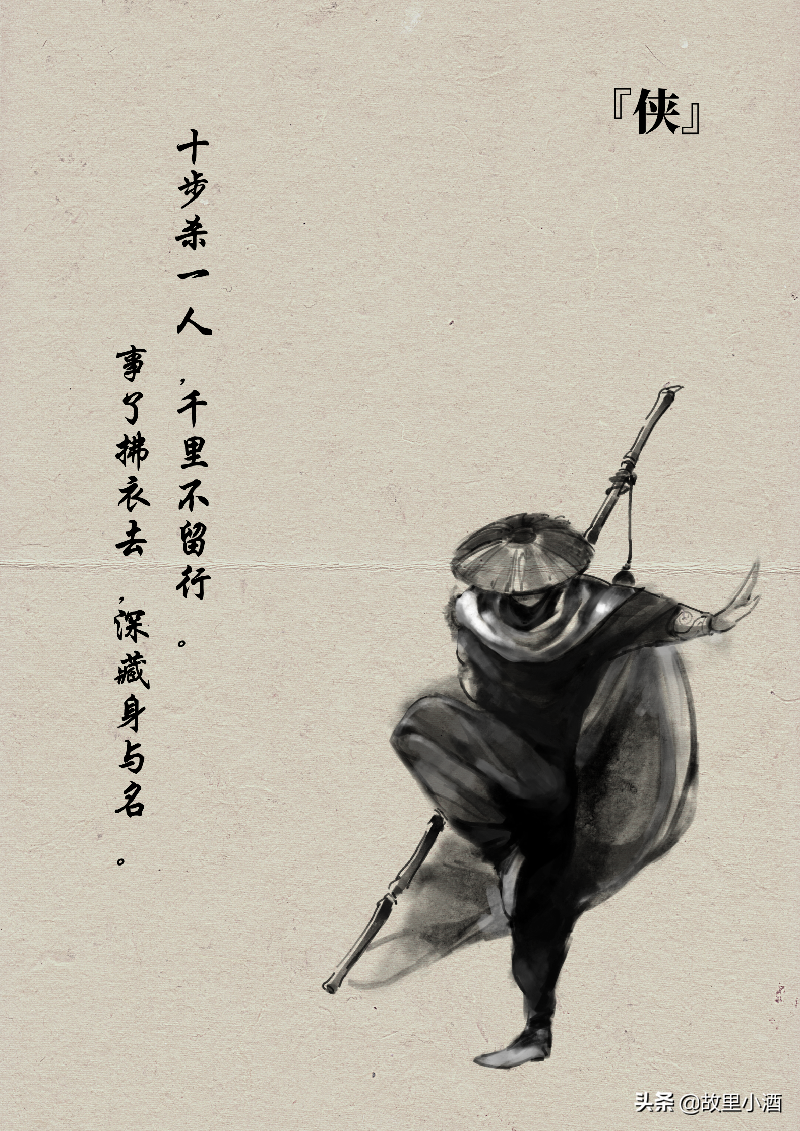 『侠』
十步杀一人，千里不留行。
事了拂衣去，深藏身与名。
头条 @故里小酒